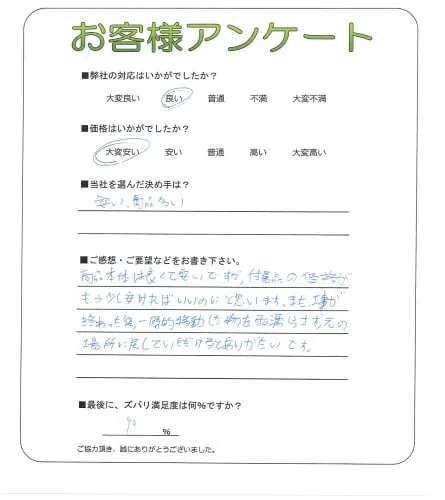 お客様アンケート
■弊社の対応はいかがでしたか？
大変良い 良い 普通 不満 大変不満
■価格はいかがでしたか？
大変安い 安い 普通 高い 大変高い
■当社を選んだ決め手は？
安い、商品多い
■ご感想・ご要望などをお書き下さい。
商品本体は良くて安いですが、付属品の価格が
もう少し安ければいいのにと思います。また、工事が
終わった後、一時的移動した物を 元の
場所に戻していただけるとありがたいです。
■最後に、ズバリ満足度は何％ですか？
90 ％
ご協力頂き、誠にありがとうございました。